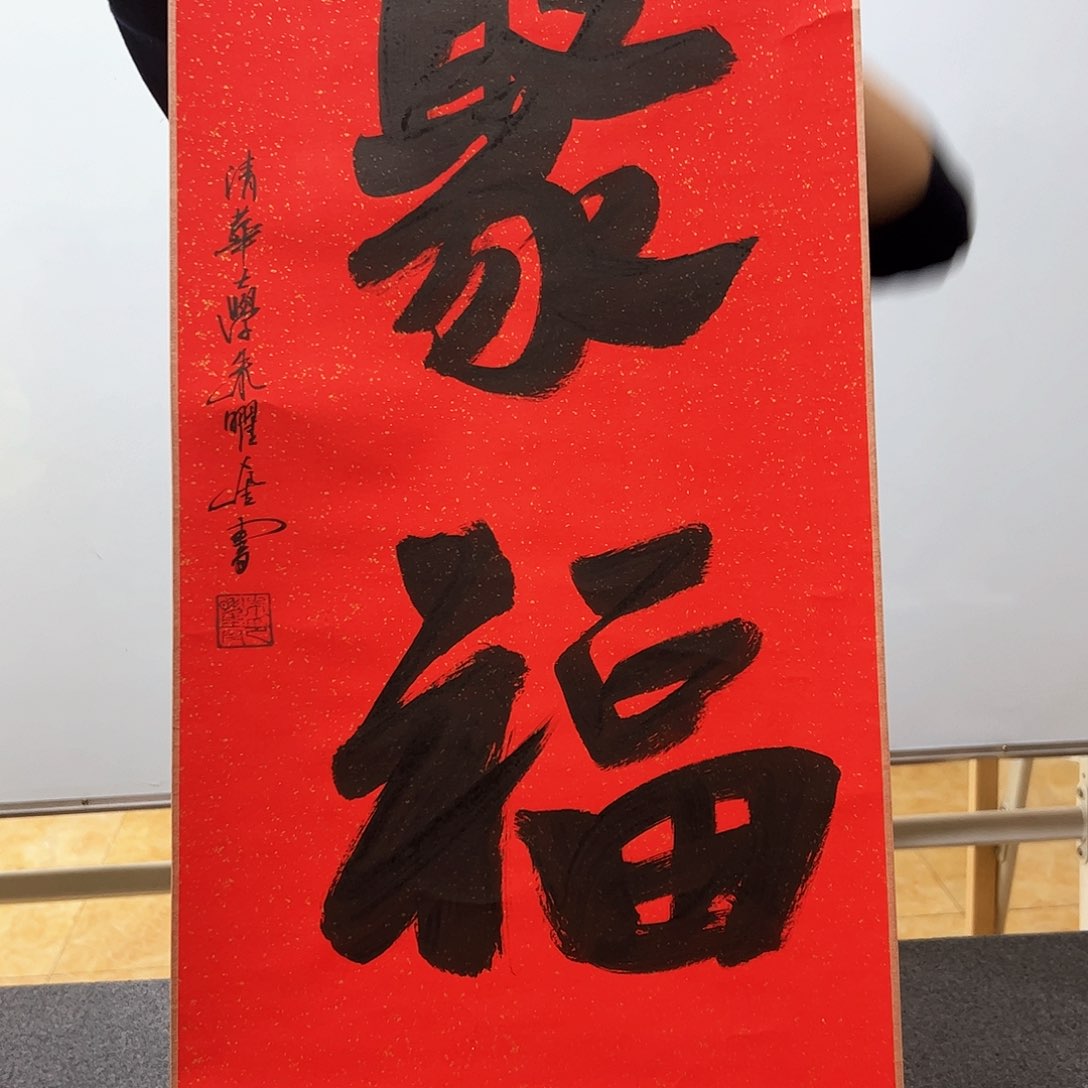 聚福
清華大學朱曜奎書